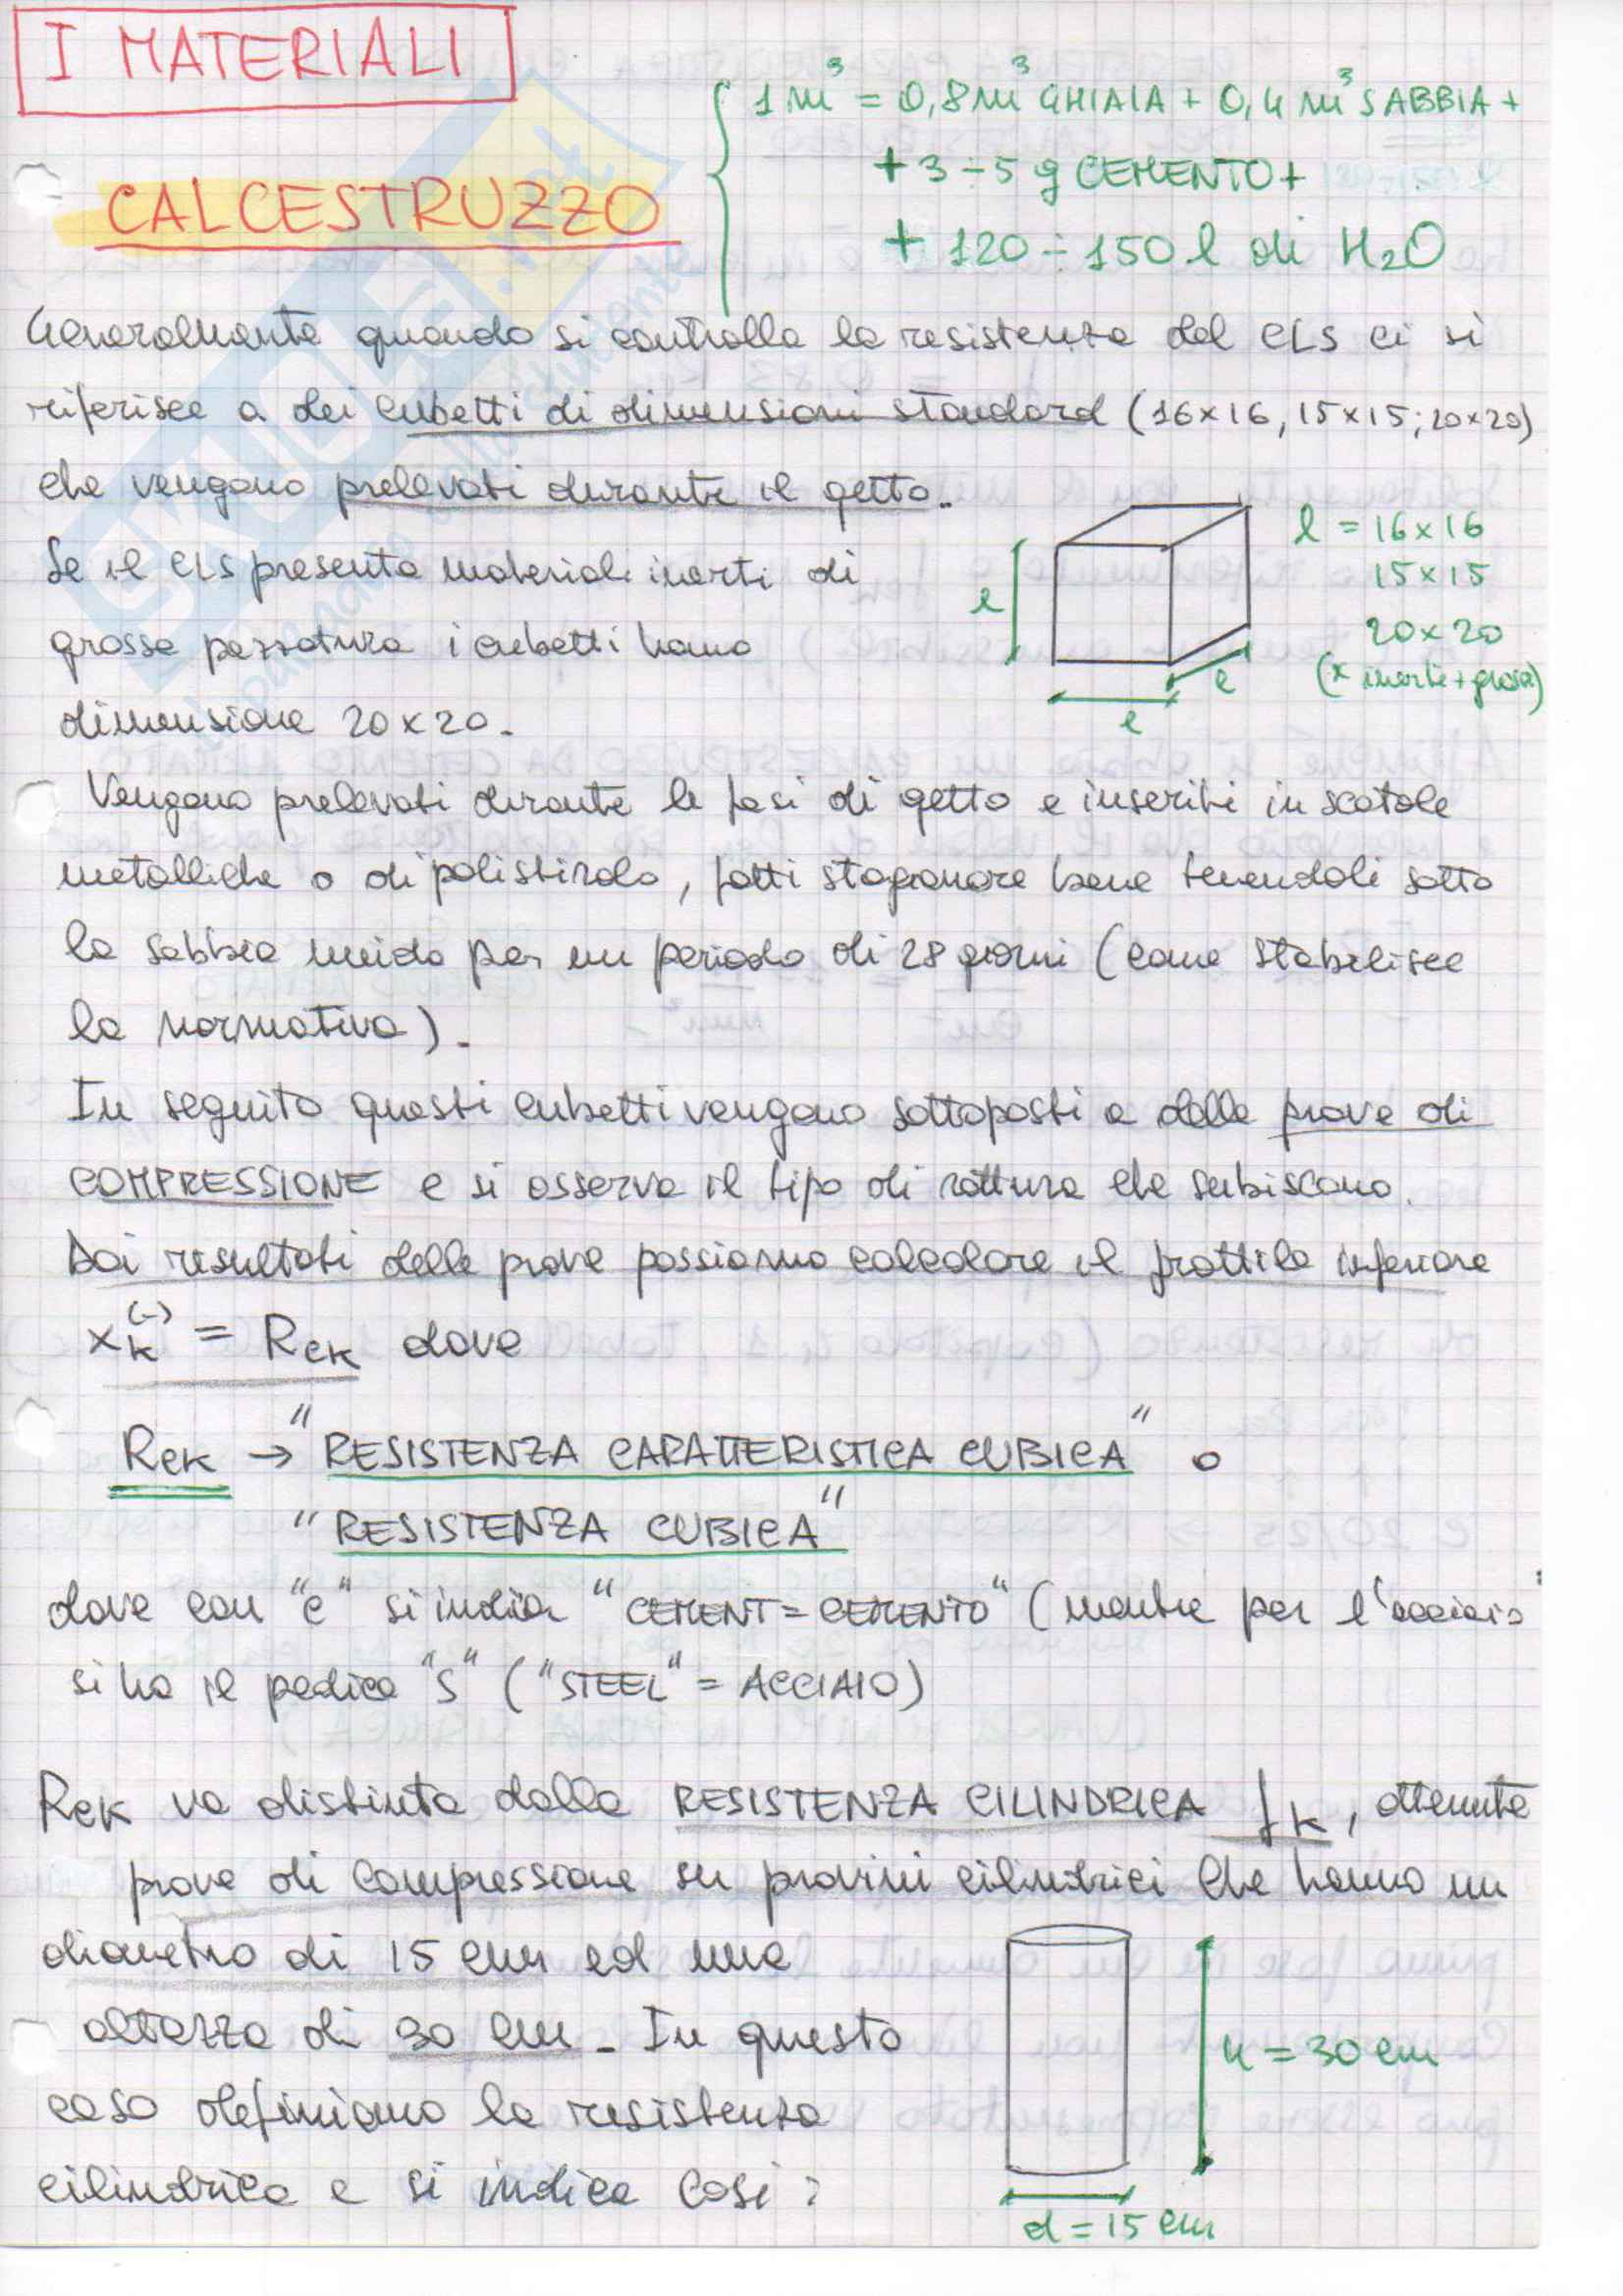 I MATERIALI
CALCESTRUZZO
1 m³ = 0,8 m³ GHIAIA + 0,4 m³ SABBIA +
+ 3 ÷ 5 q CEMENTO +
+ 120 ÷ 150 l di H₂O
Generalmente quando si controlla la resistenza del CLS ci si
riferisce a dei cubetti di dimensioni standard (16x16, 15x15; 20x20)
che vengono prelevati durante il getto.
Se il CLS presenta materiali inerti di
grossa pezzatura i cubetti hanno
dimensione 20x20.
l
l
l
l = 16x16
15x15
20x20
(x inerti + grossi)
Vengono prelevati durante le fasi di getto e inseriti in scatole
metalliche o di polistirolo, fatti stagionare bene tenendoli sotto
la sabbia umida per un periodo di 28 giorni (come stabilisce
la normativa).
In seguito questi cubetti vengono sottoposti a delle prove di
COMPRESSIONE e si osserva il tipo di rottura che subiscono.
Dai risultati delle prove possiamo calcolare il frattile inferiore
xₖ⁽⁻⁾ = Rck dove
Rck → "RESISTENZA CARATTERISTICA CUBICA" o
"RESISTENZA CUBICA"
dove con "c" si indica "CEMENT = CEMENTO" (mentre per l'acciaio
si ha il pedice "S" ("STEEL" = ACCIAIO)
Rck va distinta dalla RESISTENZA CILINDRICA fk, ottenuta
prove di compressione su provini cilindrici che hanno un
diametro di 15 cm ed una
altezza di 30 cm. In questo
caso definiamo la resistenza
cilindrica e si indica così:
h = 30 cm
d = 15 cm
SKUOLA.net